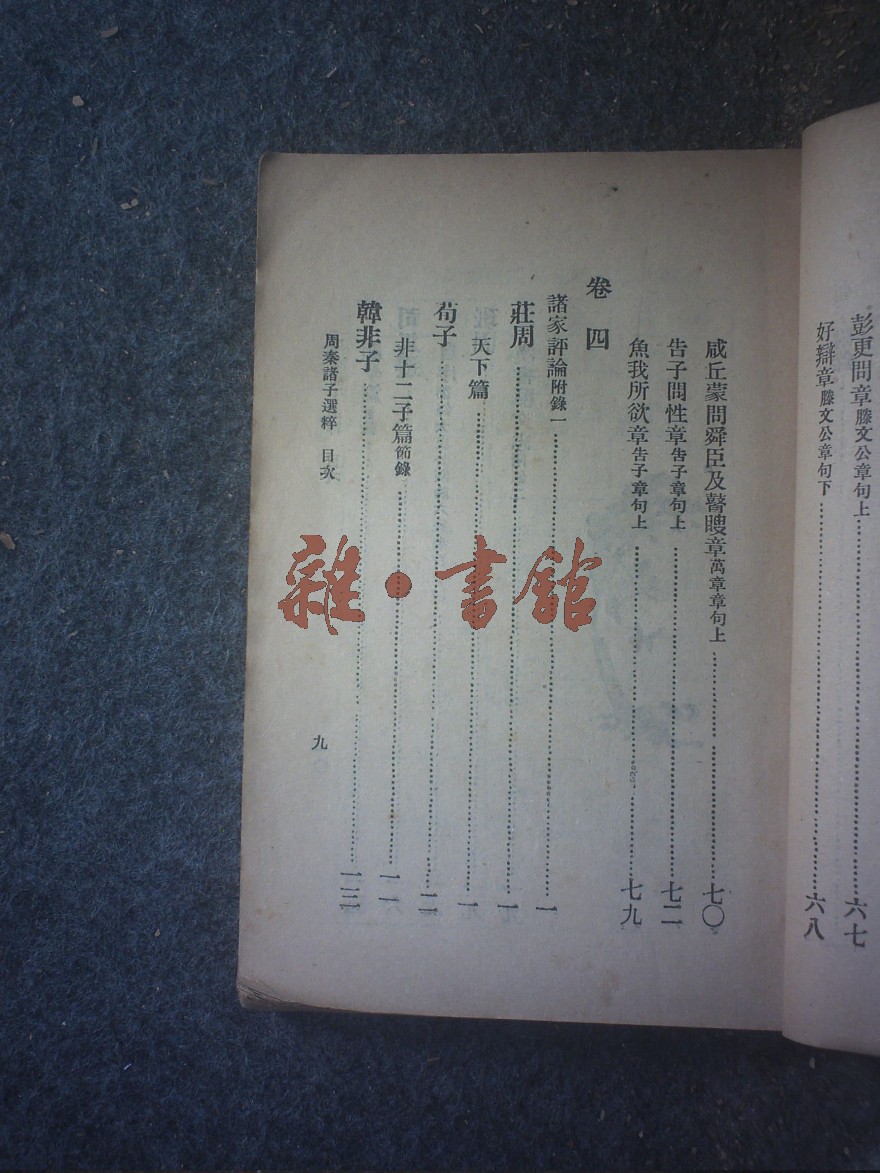 彭更問章滕文公章句上……六七
好辯章滕文公章句下……六八
咸丘蒙問舜臣及瞽瞍章萬章章句上……七〇
告子問性章告子章句上……七二
魚我所欲章告子章句上……七九
卷四
諸家評論附錄一……一
莊周……一
天下篇……一
荀子……一一
非十二子篇節錄……一一
韓非子……一三
周秦諸子選粹 目次
九
雜·書館